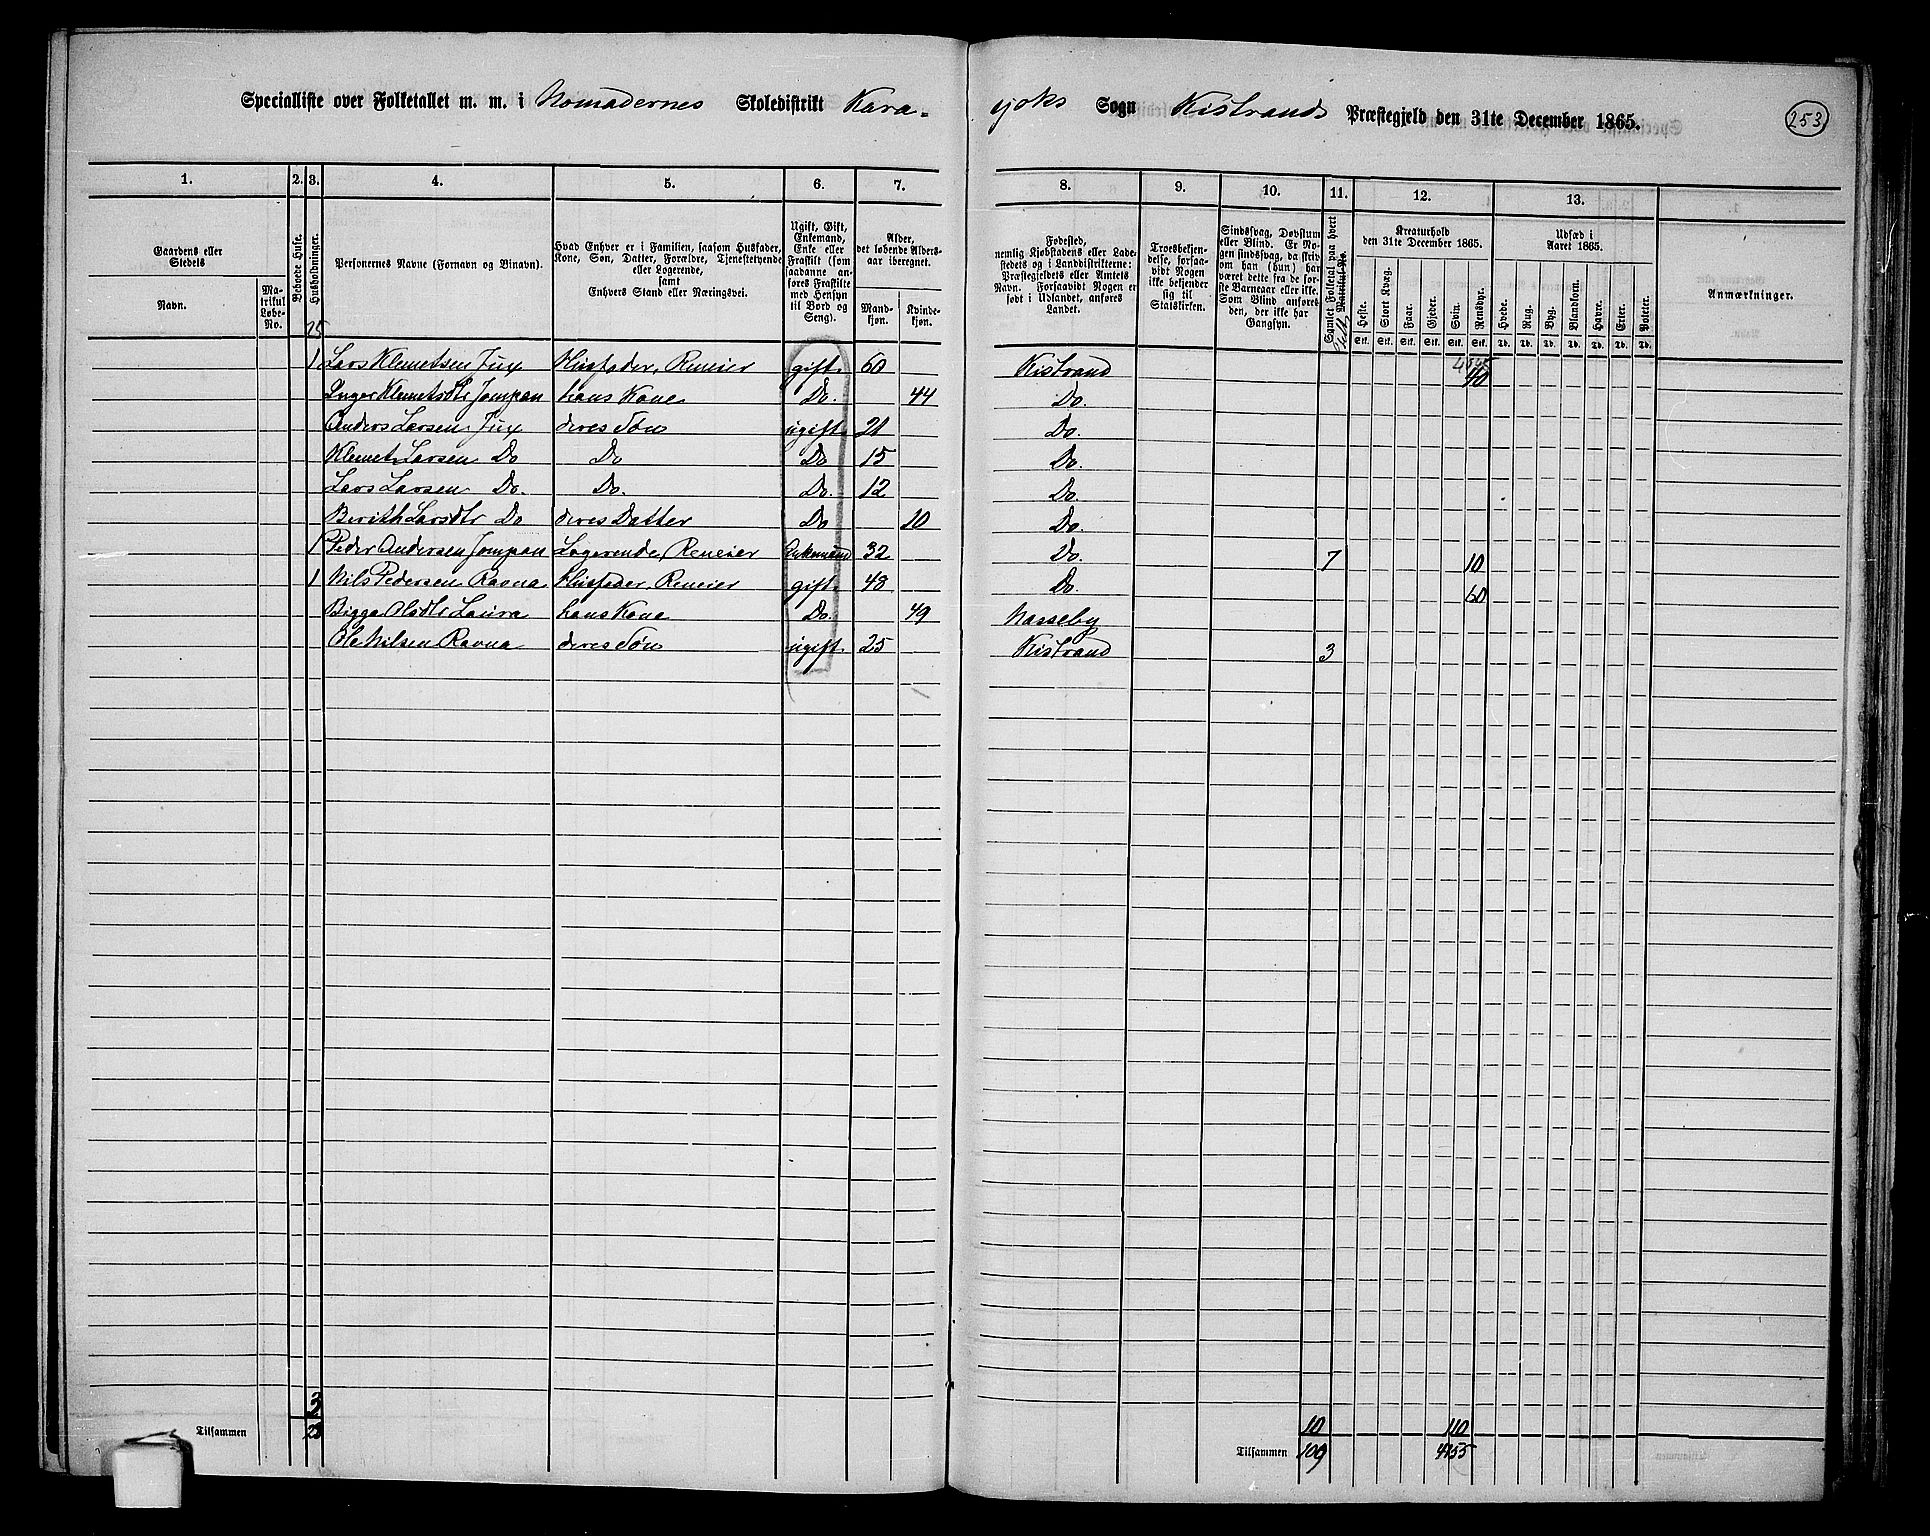 Specialliste over Folketallet m. m. i Nomadernes Skoledistrikt Kara-
yoks Sogn Kistrands Præstegjeld den 31te December 1865.
253
1. 2. 3. 4. 5. 6. 7. 8. 9. 10. 11. 12. 13.
Gaardens eller Stedets
Navn.
Matrikul Løbe-No.
Beboede Huse.
Husholdninger.
Personernes Navne (Fornavn og Binavn).
Hvad Enhver er i Familien, saasom Husfader, Kone, Søn, Datter, Forældre, Tjenestetyende eller Logerende, samt Enhvers Stand eller Næringsvei.
Ugift, Gift, Enkemand, Enke eller Fraskilt (som saadanne anføres Fraskilte med Hensyn til Bord og Seng).
Alder, det løbende Alders-aar iberegnet.
Mand-kjøn.
Kvinde-kjøn.
Fødested, nemlig Kjøbstadens eller Lade-stedets og i Landdistrikterne: Præstegjeldets eller Amtets Navn. Forsaavidt Nogen er født i Udlandet, anføres Landet.
Troesbekjen-delse, forsaa-vidt Nogen ikke bekjender sig til Statskirken.
Sindssvag, Døvstum eller Blind. Er No-gen sindssvag, da skriv om han (hun) har været dette fra de for-ste Barneaar eller ikke. Som Blind anføres den, der ikke har Gangsyn.
Samlet Folketal paa hvert Matrikul-No.
Kreaturhold den 31te December 1865.
Heste. Stort Kvæg. Faar. Gjeder. Svin. Rensdyr.
Stk. Stk. Stk. Stk. Stk. Stk.
Udsæd i Aaret 1865.
Hvede. Rug. Byg. Blandkorn. Havre. Erter. Poteter.
Td. Td. Td. Td. Td. Td. Td.
Anmærkninger.
25
1 Lars Klemetsen Jux Husfader, Reneier gift 60 Kistrand 40
Inger Klemetsdtr Jompan hans Kone Do. 44 Do.
Anders Larsen Jux deres Søn ugift 21 Do.
Klemet Larsen Do Do Do 15 Do.
Lars Larsen Do. Do. Do. 12 Do.
Berith Larsdtr Do deres Datter Do 10 Do.
1 Peder Andersen Jompan Logerende, Reneier Enkemand 32 Do. 7 10
1 Nils Pedersen Ravna Husfader, Reneier gift 48 Do. 60
Bigga Olsdtr Laura hans Kone Do. 49 Nasseby
Ole Nilsen Ravna deres Søn ugift 25 Kistrand 3
3 10 110
Tilsammen 28 Tilsammen 109 4755